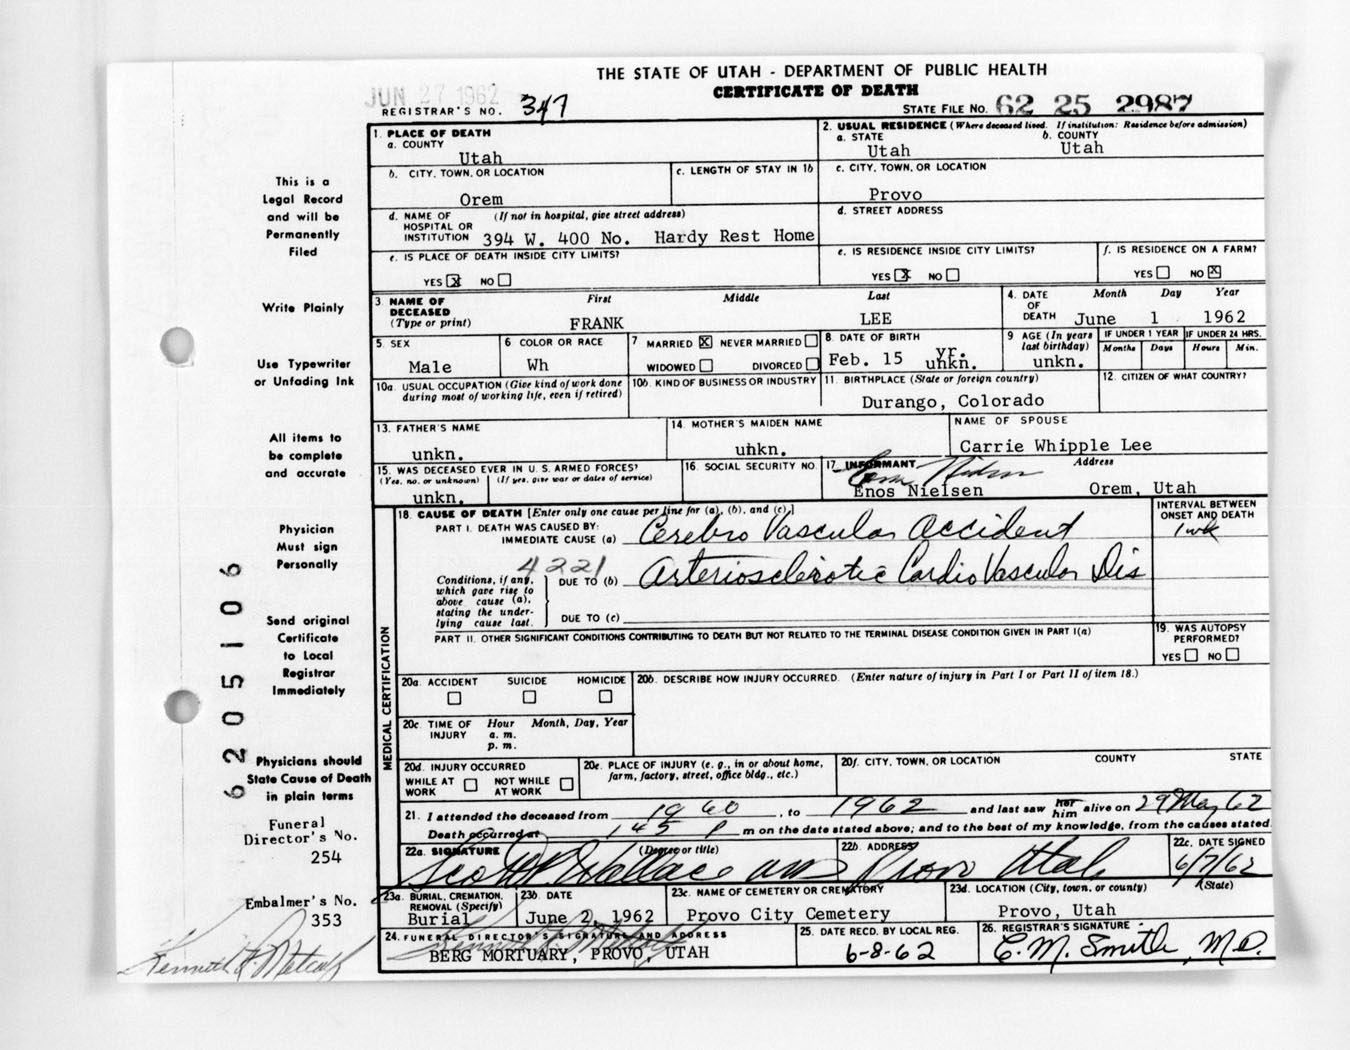 THE STATE OF UTAH - DEPARTMENT OF PUBLIC HEALTH
CERTIFICATE OF DEATH
JUN 27 1962
REGISTRAR'S NO. 347
STATE FILE NO. 62 25 2987
This is a
Legal Record
and will be
Permanently
Filed
Write Plainly
Use Typewriter
or Unfading Ink
All items to
be complete
and accurate
Physician
Must sign
Personally
Send original
Certificate
to Local
Registrar
Immediately
Physicians should
State Cause of Death
in plain terms
Funeral
Director's No.
254
Embalmer's No.
353
Kenneth F. Metcalf
6205106
1. PLACE OF DEATH
a. COUNTY
Utah
2. USUAL RESIDENCE (Where deceased lived. If institution: Residence before admission)
a. STATE b. COUNTY
Utah Utah
b. CITY, TOWN, OR LOCATION
Orem
c. LENGTH OF STAY IN 1b
c. CITY, TOWN, OR LOCATION
Provo
d. NAME OF (If not in hospital, give street address)
HOSPITAL OR
INSTITUTION 394 W. 400 No. Hardy Rest Home
d. STREET ADDRESS
e. IS PLACE OF DEATH INSIDE CITY LIMITS?
YES X NO
e. IS RESIDENCE INSIDE CITY LIMITS?
YES X NO
f. IS RESIDENCE ON A FARM?
YES NO X
3. NAME OF First Middle Last
DECEASED
(Type or print) FRANK LEE
4. DATE Month Day Year
OF
DEATH June 1 1962
5. SEX
Male
6 COLOR OR RACE
Wh
7 MARRIED X NEVER MARRIED
WIDOWED DIVORCED
8. DATE OF BIRTH
Feb. 15 yr. unkn.
9 AGE (In years last birthday)
unkn.
IF UNDER 1 YEAR IF UNDER 24 HRS.
Months Days Hours Min.
10a. USUAL OCCUPATION (Give kind of work done
during most of working life, even if retired)
10b. KIND OF BUSINESS OR INDUSTRY
11. BIRTHPLACE (State or foreign country)
Durango, Colorado
12. CITIZEN OF WHAT COUNTRY?
13. FATHER'S NAME
unkn.
14. MOTHER'S MAIDEN NAME
unkn.
NAME OF SPOUSE
Carrie Whipple Lee
15. WAS DECEASED EVER IN U. S. ARMED FORCES?
(Yes, no, or unknown) (If yes, give war or dates of service)
unkn.
16. SOCIAL SECURITY NO.
17. INFORMANT Address
Enos Nielsen Orem, Utah
MEDICAL CERTIFICATION
18. CAUSE OF DEATH [Enter only one cause per line for (a), (b), and (c).]
INTERVAL BETWEEN
ONSET AND DEATH
PART I. DEATH WAS CAUSED BY:
IMMEDIATE CAUSE (a) Cerebro Vascular Accident 1 wk
4221
Conditions, if any,
which gave rise to
above cause (a),
stating the under-
lying cause last.
DUE TO (b) Arteriosclerotic Cardio Vascular Dis
DUE TO (c)
PART II. OTHER SIGNIFICANT CONDITIONS CONTRIBUTING TO DEATH BUT NOT RELATED TO THE TERMINAL DISEASE CONDITION GIVEN IN PART I(a)
19. WAS AUTOPSY
PERFORMED?
YES NO
20a. ACCIDENT SUICIDE HOMICIDE
20b. DESCRIBE HOW INJURY OCCURRED. (Enter nature of injury in Part I or Part II of item 18.)
20c. TIME OF Hour Month, Day, Year
INJURY a. m.
p. m.
20d. INJURY OCCURRED
WHILE AT WORK NOT WHILE AT WORK
20e. PLACE OF INJURY (e. g., in or about home,
farm, factory, street, office bldg., etc.)
20f. CITY, TOWN, OR LOCATION COUNTY STATE
21. I attended the deceased from 1960, to 1962 and last saw her him alive on 29 May 62
Death occurred at 1 45 P m on the date stated above; and to the best of my knowledge, from the causes stated.
22a. SIGNATURE (Degree or title)
Wallace MD
22b. ADDRESS
Provo Utah
22c. DATE SIGNED
6/7/62
23a. BURIAL, CREMATION,
REMOVAL (Specify)
Burial
23b. DATE
June 2, 1962
23c. NAME OF CEMETERY OR CREMATORY
Provo City Cemetery
23d. LOCATION (City, town, or county) (State)
Provo, Utah
24. FUNERAL DIRECTOR'S SIGNATURE AND ADDRESS
BERG MORTUARY, PROVO, UTAH
25. DATE RECD. BY LOCAL REG.
6-8-62
26. REGISTRAR'S SIGNATURE
C. M. Smith, M.D.